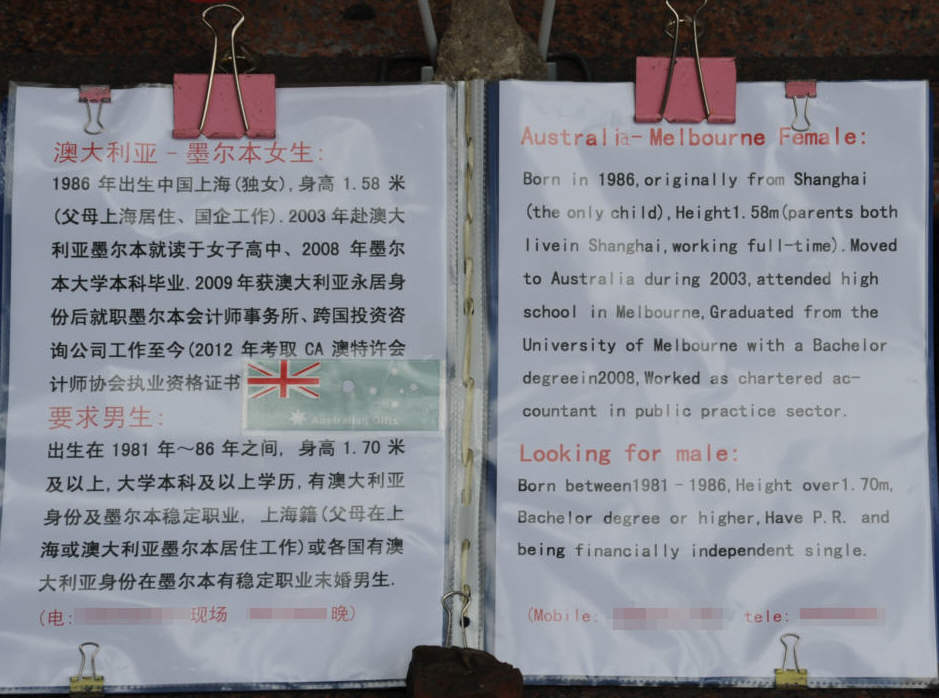 澳大利亚-墨尔本女生:
1986 年出生中国上海(独女),身高 1.58 米
(父母上海居住、国企工作).2003 年赴澳大
利亚墨尔本就读于女子高中、2008 年墨尔
本大学本科毕业.2009 年获澳大利亚永居身
份后就职墨尔本会计师事务所、跨国投资咨
询公司工作至今(2012 年考取 CA 澳特许会
计师协会执业资格证书
Australian Gifts
要求男生:
出生在 1981 年～86 年之间, 身高 1.70 米
及以上,大学本科及以上学历,有澳大利亚
身份及墨尔本稳定职业, 上海籍(父母在上
海或澳大利亚墨尔本居住工作)或各国有澳
大利亚身份在墨尔本有稳定职业未婚男生.
(电: 现场 晚)
Australia-Melbourne Female:
Born in 1986,originally from Shanghai
(the only child),Height1.58m(parents both
livein Shanghai,working full-time).Moved
to Australia during 2003,attended high
school in Melbourne,Graduated from the
University of Melbourne with a Bachelor
degreein2008,Worked as chartered ac-
countant in public practice sector.
Looking for male:
Born between1981-1986,Height over1.70m,
Bachelor degree or higher,Have P.R. and
being financially independent single.
(Mobile: tele: